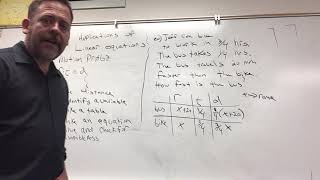 Applications of
Linear equations
Motion Probs
rt = d
distance
Identify a variable
a table
an equation
and check for
ex) Jeff can bike
to work in 3/4 hrs.
The bus takes 1/4 hrs.
The bus travels 20 mph
faster than the bike.
How fast is the bus?
r t d
bus x+20 1/4 1/4(x+20)
bike x 3/4 3/4 x